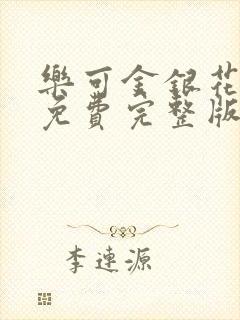 樂可金銀花
免費完整版
李連源